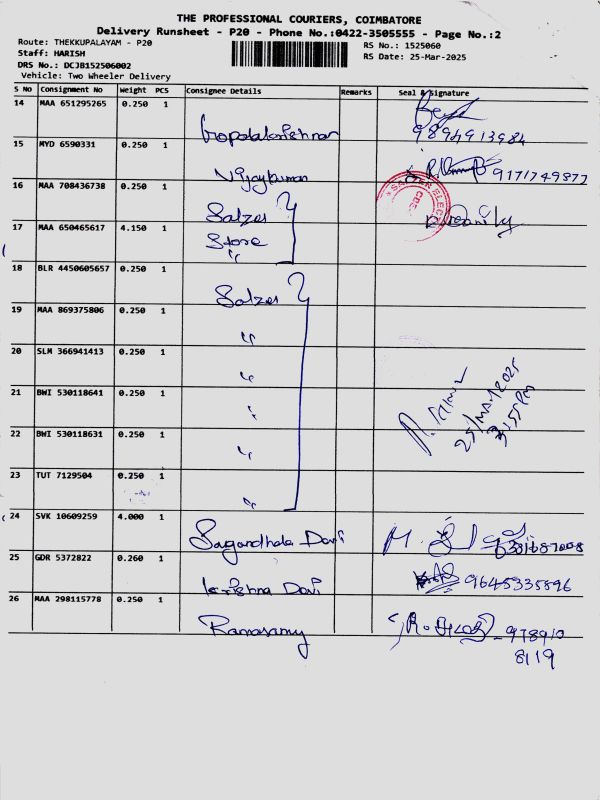 THE PROFESSIONAL COURIERS, COIMBATORE
Delivery Runsheet - P20 - Phone No.:0422-3505555 - Page No.:2
Route: THEKKUPALAYAM - P20
RS No.: 1525060
Staff: HARISH
RS Date: 25-Mar-2025
DRS No.: DCJB152506002
Vehicle: Two Wheeler Delivery
S No Consignment No Weight PCS Consignee Details Remarks Seal & Signature
14 MAA 651295265 0.250 1
Gopalakrishnan 9894913984
15 MYD 6590331 0.250 1
Vijaykumar 9171749877
16 MAA 708436738 0.250 1
Salzer
17 MAA 650465617 4.150 1
Store
"
18 BLR 4450605657 0.250 1
Salzer
19 MAA 869375806 0.250 1
"
20 SLM 366941413 0.250 1
"
21 BWI 530118641 0.250 1
"
25/Mar/2025
3:55pm
22 BWI 530118631 0.250 1
"
23 TUT 7129504 0.250 1
"
24 SVK 10609259 4.000 1
Devi
25 GDR 5372822 0.260 1
Krishna Devi 9645335896
26 MAA 298115778 0.250 1
Ramasamy 978910
8119